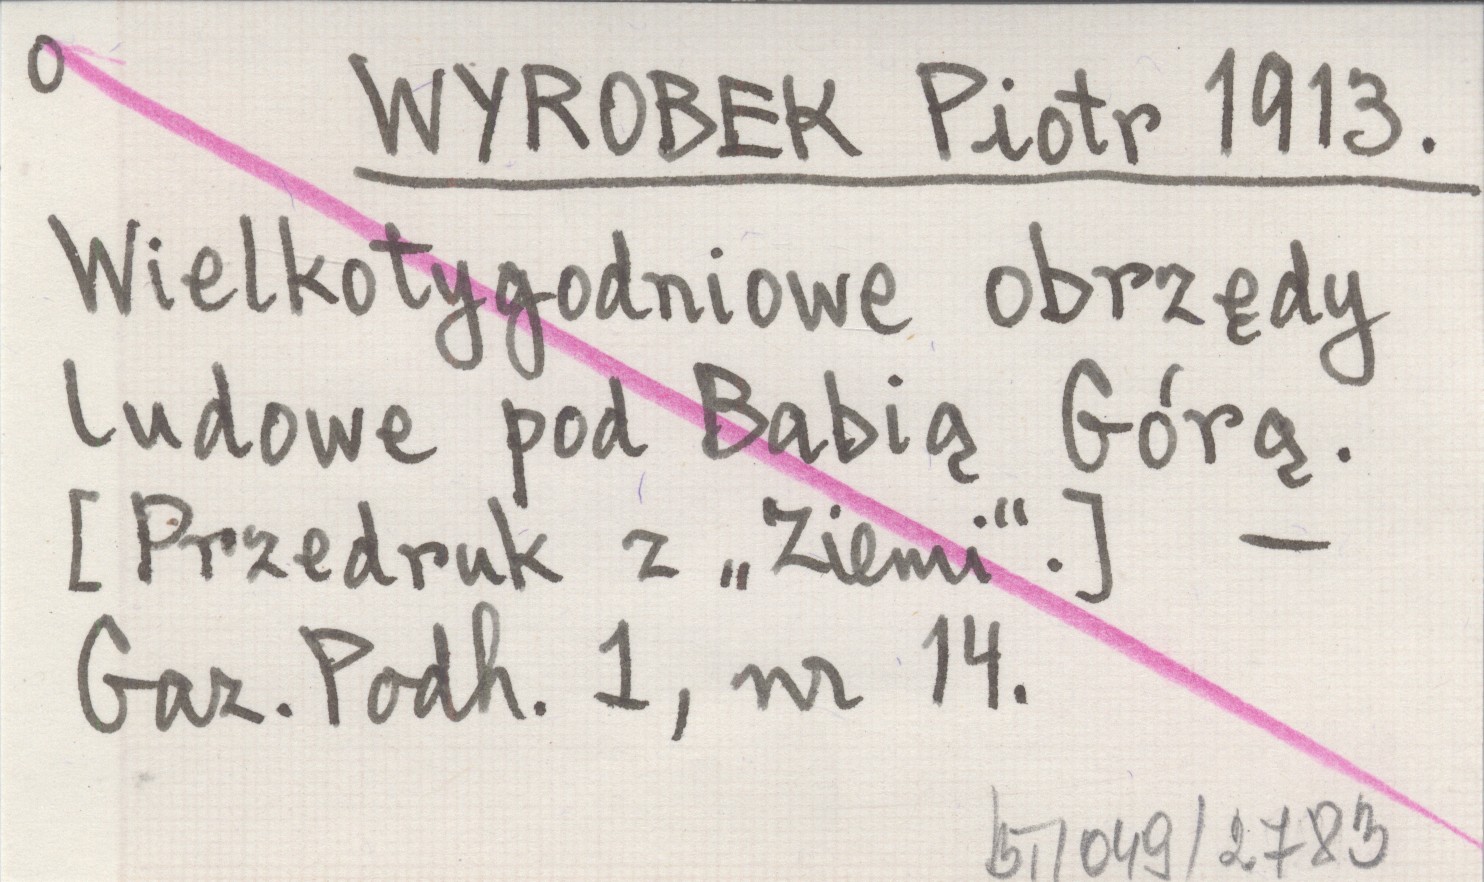 o
WYROBEK Piotr 1913.
Wielkotygodniowe obrzędy
ludowe pod Babią Górą.
[Przedruk z „Ziemi“.] —
Gaz. Podh. 1, nr 14.
/049/2783